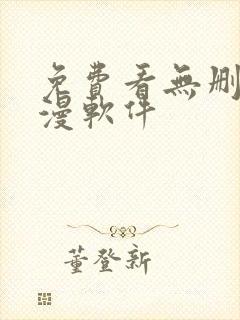 免費看無刪
漫軟件
董登新